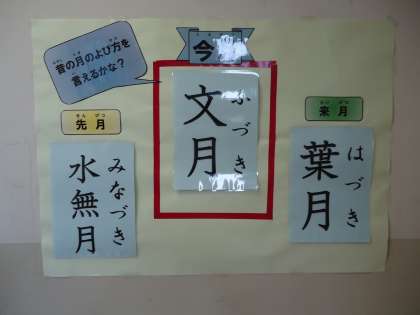 昔の月のよび方を
言えるかな？
今
文月
ふづき
先月
せん げつ
水無月
みなづき
来月
らい げつ
葉月
はづき